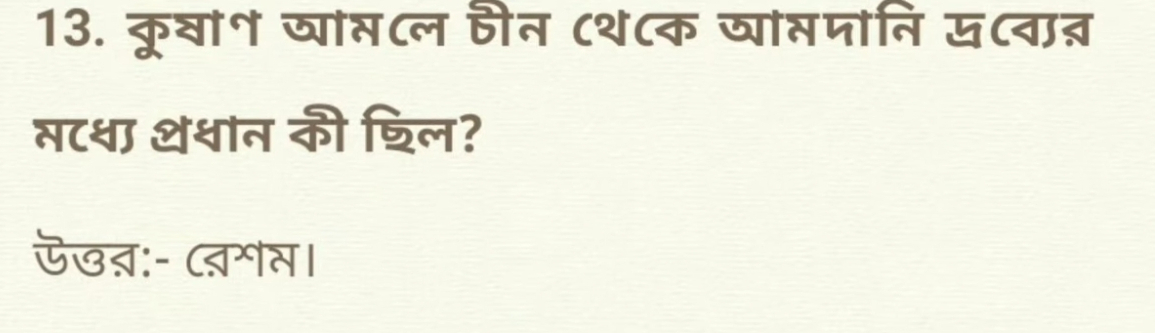 13. কুষাণ আমলে চীন থেকে আমদানি দ্রব্যের
মধ্যে প্রধান কী ছিল?
উত্তর:- রেশম।